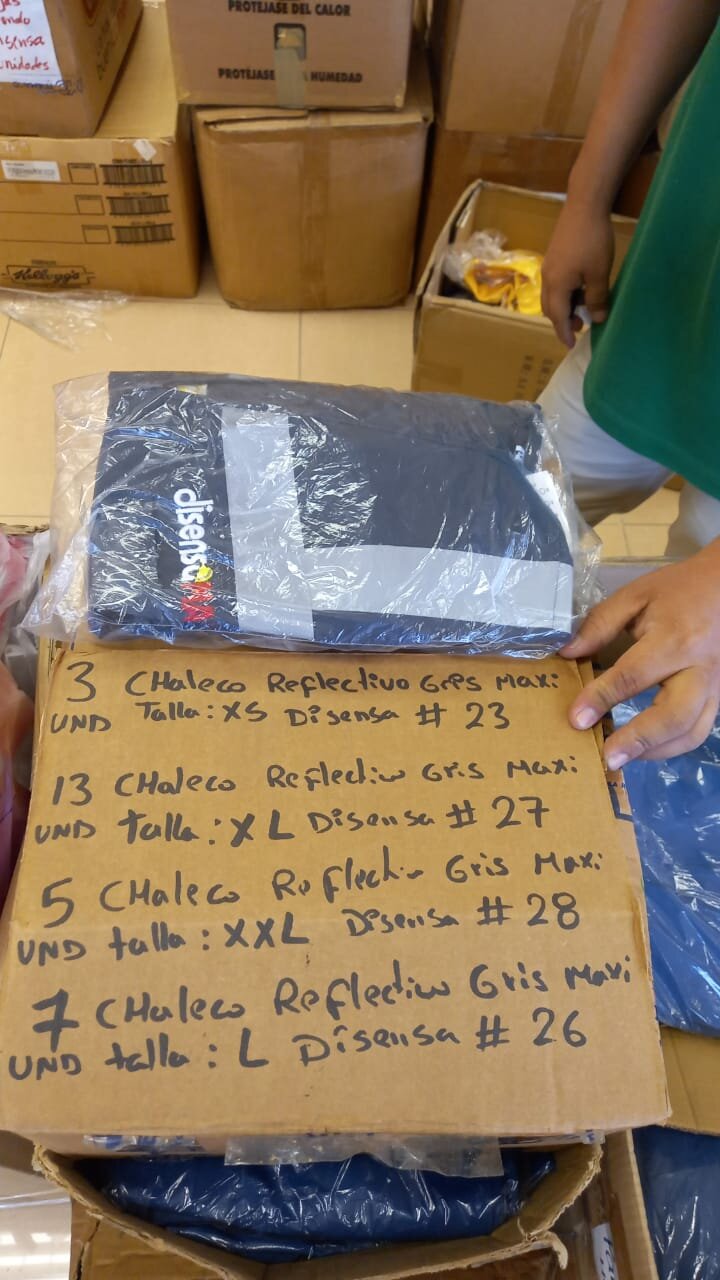 nsa
unidades
PROTÉJASE DEL CALOR
PROTÉJASE LA HUMEDAD
Kellogg's
disensa
3 CHaleco Reflectivo Gris Maxi
UND Talla: XS Disensa # 23
13 CHaleco Reflectivo Gris Maxi
UND talla: XL Disensa # 27
5 CHaleco Reflectivo Gris Maxi
UND talla: XXL Disensa # 28
7 CHaleco Reflectivo Gris Maxi
UND talla: L Disensa # 26